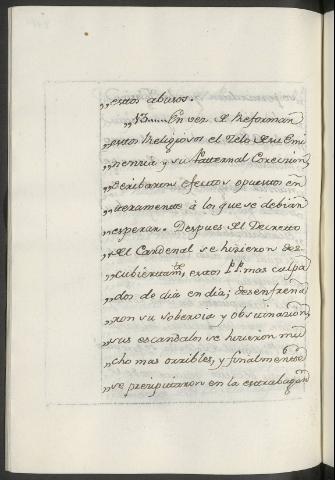 „estos abusos.
„N3...... En vez de Reforman
„estos Religiosos el Zelo de su Emi
„nencia y su Paternal Coreccion,
„deribaron efectos opuestos en
„teramente à los que se debian
„esperar. Despues del Decreto
„del Cardenal se hizieron des
„cubiertamte estos P.P. mas culpa
„dos de dia en dia; desenfrena
„ron su soberbia y obstinacion,
„sus escandalos se hizieron mu
„cho mas orribles, y finalmente
„se precipitaron en la estrabagan